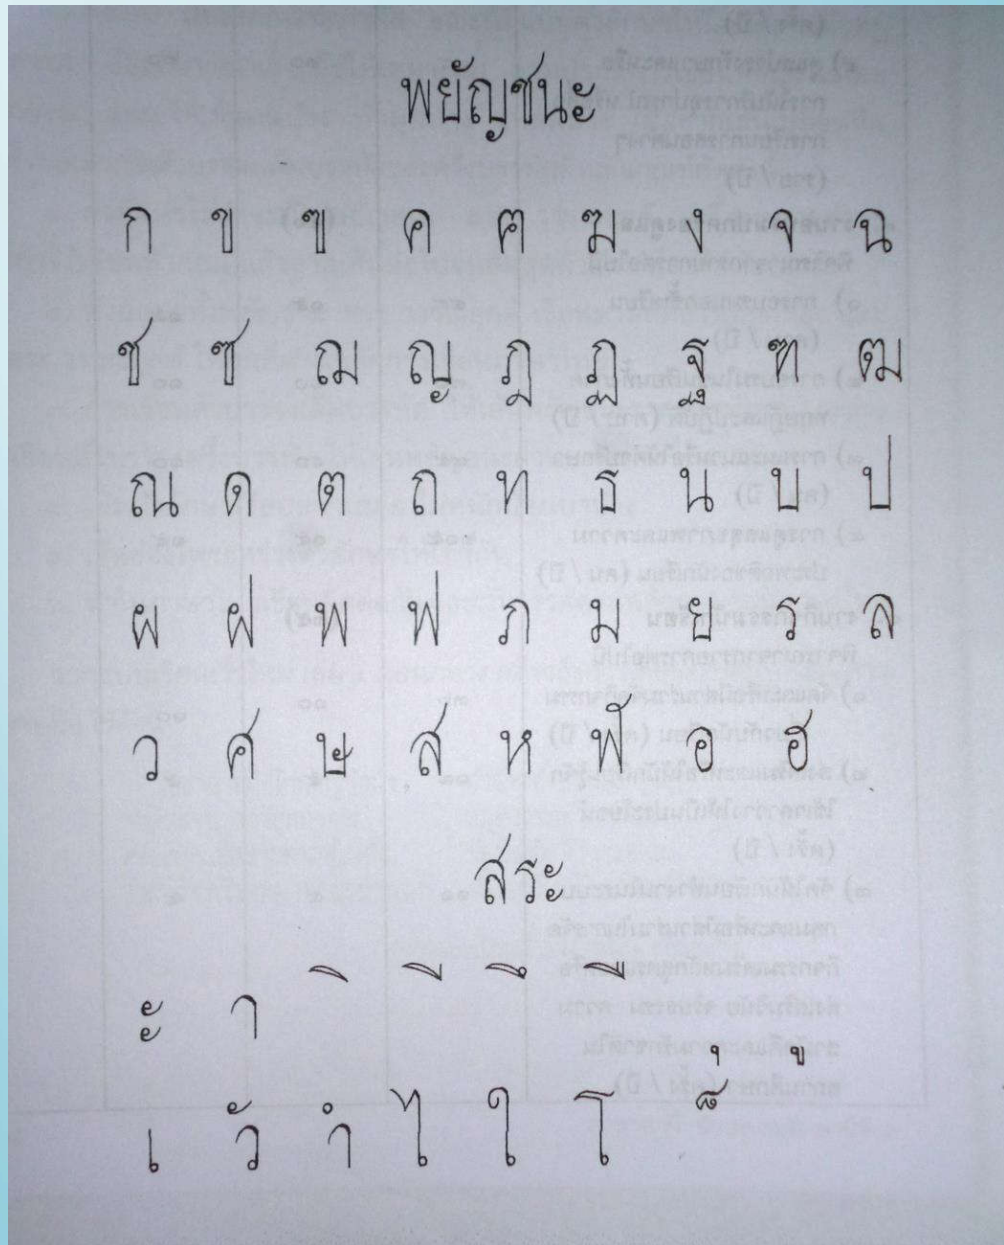 พยัญชนะ
ก ข ฃ ค ฅ ฆ ง จ ฉ
ช ซ ฌ ญ ฎ ฏ ฐ ฑ ฒ
ณ ด ต ถ ท ธ น บ ป
ผ ฝ พ ฟ ภ ม ย ร ล
ว ศ ษ ส ห ฬ อ ฮ
สระ
ะ า ิ ี ึ ื ุ ู
เ ัว ำ ไ ใ โ ็